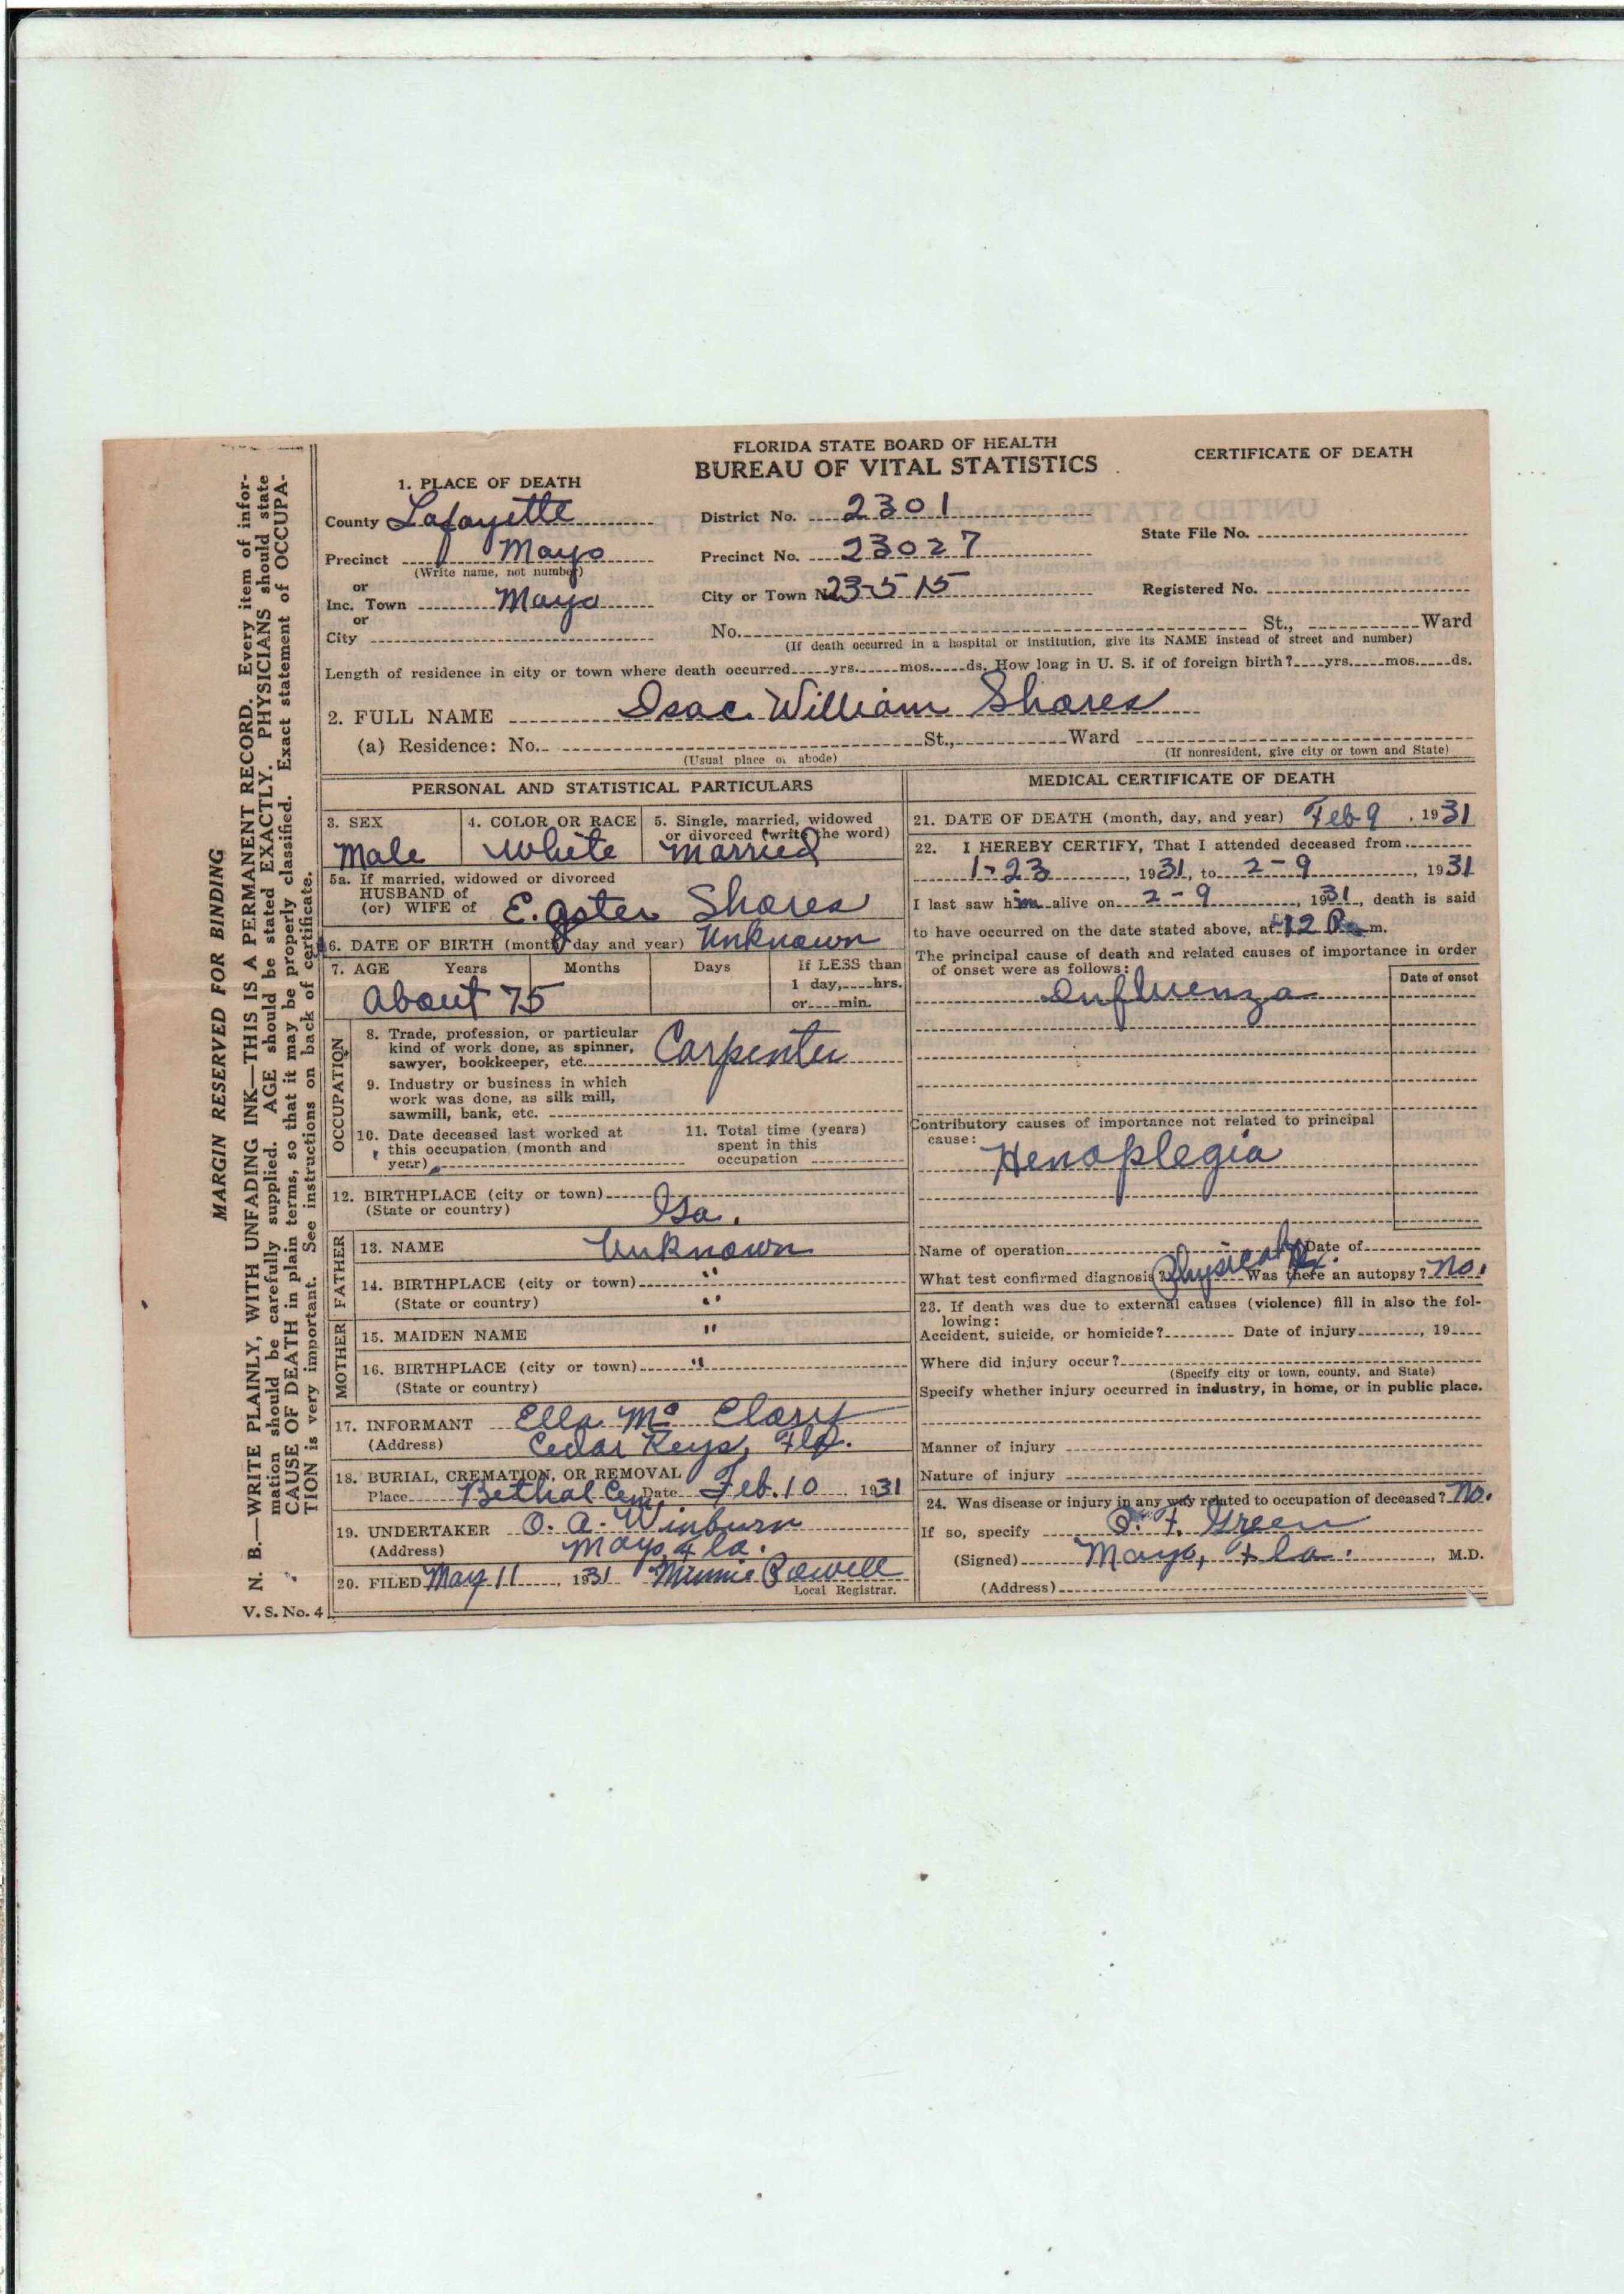 MARGIN RESERVED FOR BINDING
N. B.—WRITE PLAINLY, WITH UNFADING INK—THIS IS A PERMANENT RECORD. Every item of infor-
mation should be carefully supplied. AGE should be stated EXACTLY. PHYSICIANS should state
CAUSE OF DEATH in plain terms, so that it may be properly classified. Exact statement of OCCUPA-
TION is very important. See instructions on back of certificate.
V. S. No. 4
FLORIDA STATE BOARD OF HEALTH
BUREAU OF VITAL STATISTICS
CERTIFICATE OF DEATH
1. PLACE OF DEATH
County Lafayette District No. 2301
State File No.
Precinct Mayo Precinct No. 23027
(Write name, not number)
or
Inc. Town Mayo City or Town No. 23-515 Registered No.
or
City No. St., Ward
(If death occurred in a hospital or institution, give its NAME instead of street and number)
Length of residence in city or town where death occurred yrs. mos. ds. How long in U. S. if of foreign birth? yrs. mos. ds.
2. FULL NAME Isac William Shores
(a) Residence: No. St., Ward
(Usual place of abode) (If nonresident, give city or town and State)
PERSONAL AND STATISTICAL PARTICULARS
3. SEX 4. COLOR OR RACE 5. Single, married, widowed
or divorced (write the word)
Male White Married
5a. If married, widowed or divorced
HUSBAND of
(or) WIFE of E. Shores
6. DATE OF BIRTH (month, day and year) Unknown
7. AGE Years Months Days If LESS than
1 day, hrs.
or min.
About 75
OCCUPATION
8. Trade, profession, or particular
kind of work done, as spinner,
sawyer, bookkeeper, etc. Carpenter
9. Industry or business in which
work was done, as silk mill,
sawmill, bank, etc.
10. Date deceased last worked at
this occupation (month and
year)
11. Total time (years)
spent in this
occupation
12. BIRTHPLACE (city or town)
(State or country) Ga.
FATHER
13. NAME Unknown
14. BIRTHPLACE (city or town) "
(State or country) "
MOTHER
15. MAIDEN NAME "
16. BIRTHPLACE (city or town) "
(State or country)
17. INFORMANT Ella Mc Clary
(Address) Cedar Keys, Fla.
18. BURIAL, CREMATION, OR REMOVAL
Place Bethal Cem. Date Feb. 10 1931
19. UNDERTAKER O. A. Winburn
(Address) Mayo, Fla.
20. FILED May 11, 1931 Minnie Powell
Local Registrar.
MEDICAL CERTIFICATE OF DEATH
21. DATE OF DEATH (month, day, and year) Feb 9, 1931
22. I HEREBY CERTIFY, That I attended deceased from
1-23, 1931, to 2-9, 1931
I last saw him alive on 2-9, 1931, death is said
to have occurred on the date stated above, at 12 P. m.
The principal cause of death and related causes of importance in order
of onset were as follows:
Date of onset
Influenza
Contributory causes of importance not related to principal
cause:
Henoplegia
Name of operation Date of
What test confirmed diagnosis? Physical Ex. Was there an autopsy? No.
23. If death was due to external causes (violence) fill in also the fol-
lowing:
Accident, suicide, or homicide? Date of injury , 19
Where did injury occur?
(Specify city or town, county, and State)
Specify whether injury occurred in industry, in home, or in public place.
Manner of injury
Nature of injury
24. Was disease or injury in any way related to occupation of deceased? No.
If so, specify O. F. Green
(Signed) Mayo, Fla. , M.D.
(Address)